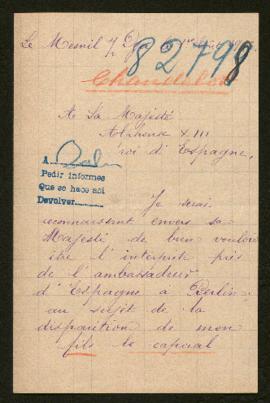 Le Mesnil
82798
A Sa Majesté
Alphonse XIII
roi d'Espagne,
A Berlin
Pedir informes
Que se hace aci
Devolver
Je serai
reconnaissant envers sa
Majesté de bien vouloir
être l'interprète près
de l'ambassadeur
d'Espagne a Berlin
au sujet de la
disparition de mon
fils le caporal